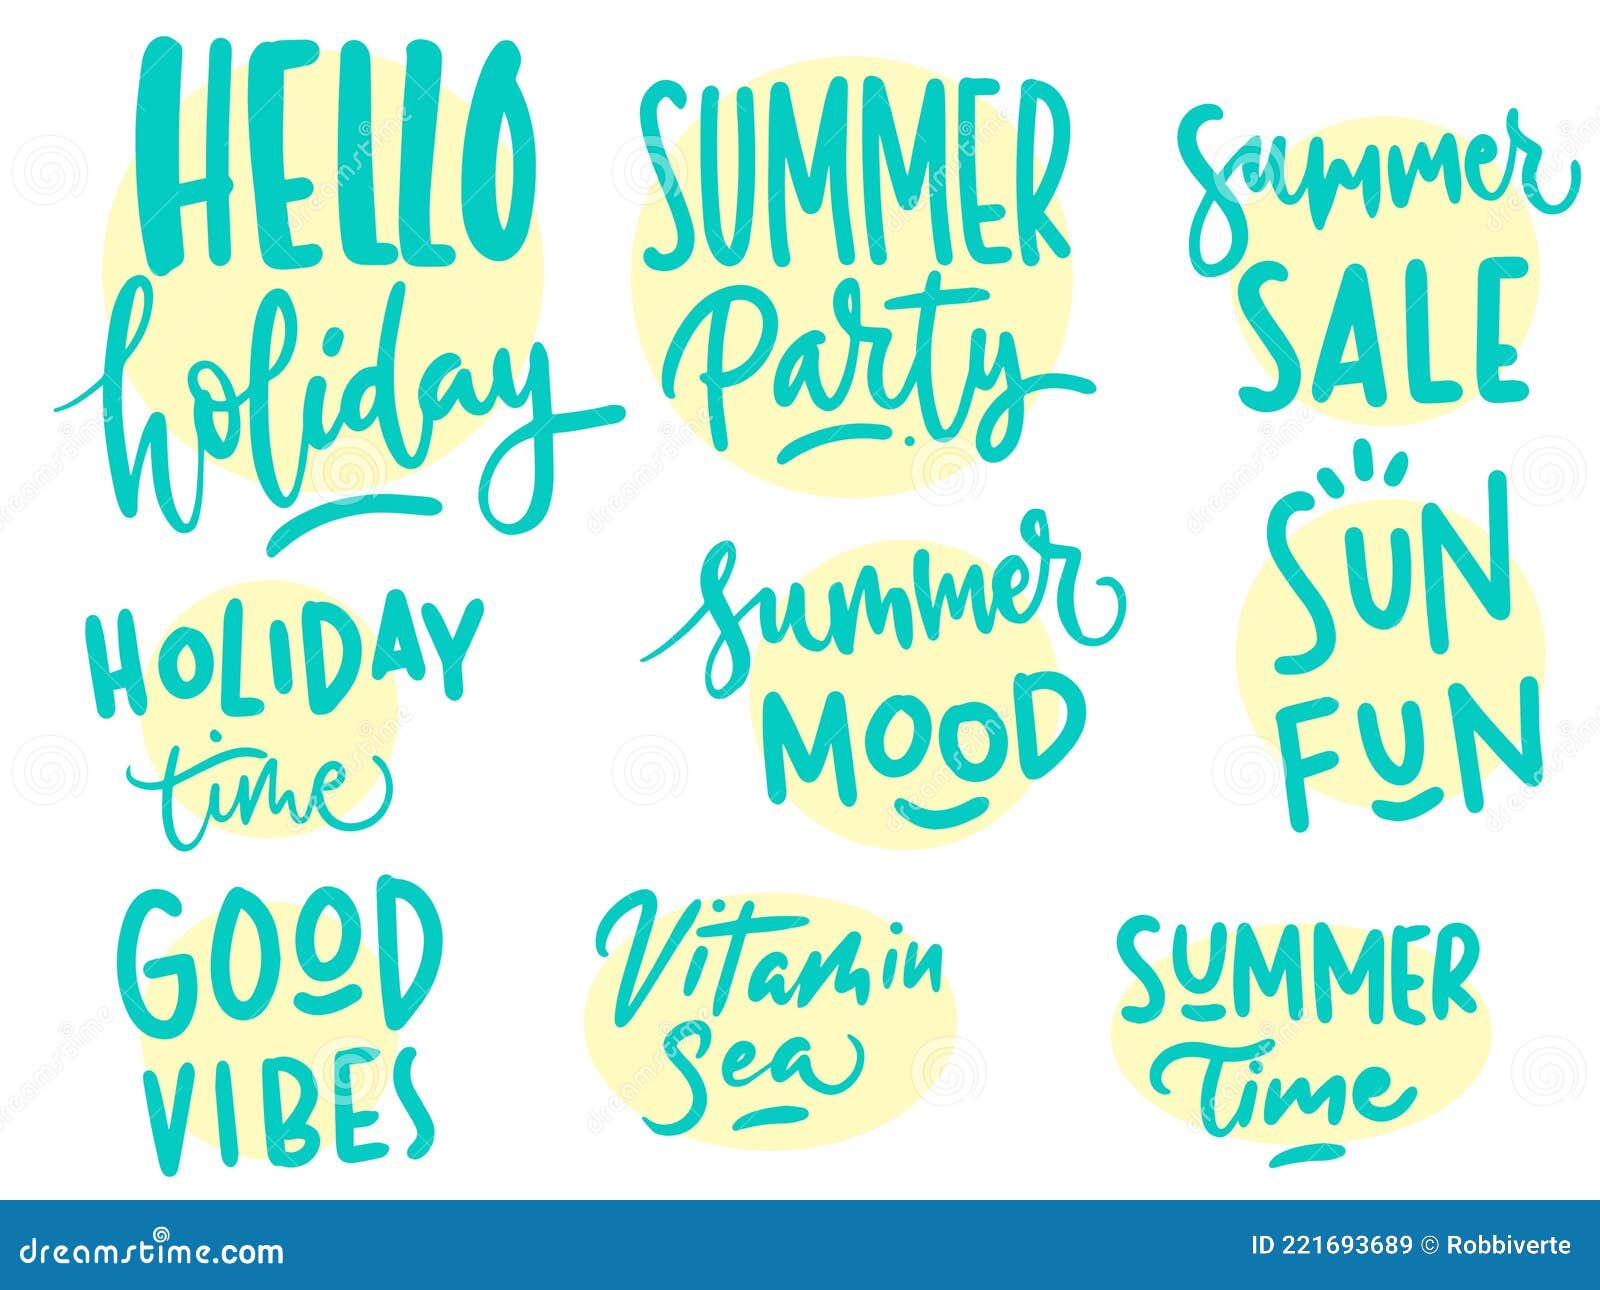 HELLO
holiday
SUMMER
Party
Summer
SALE
HOLIDAY
time
summer
MOOD
SUN
FUN
GOOD
VIBES
Vitamin
Sea
SUMMER
Time
dreamstime.com
ID 221693689 © Robbiverte